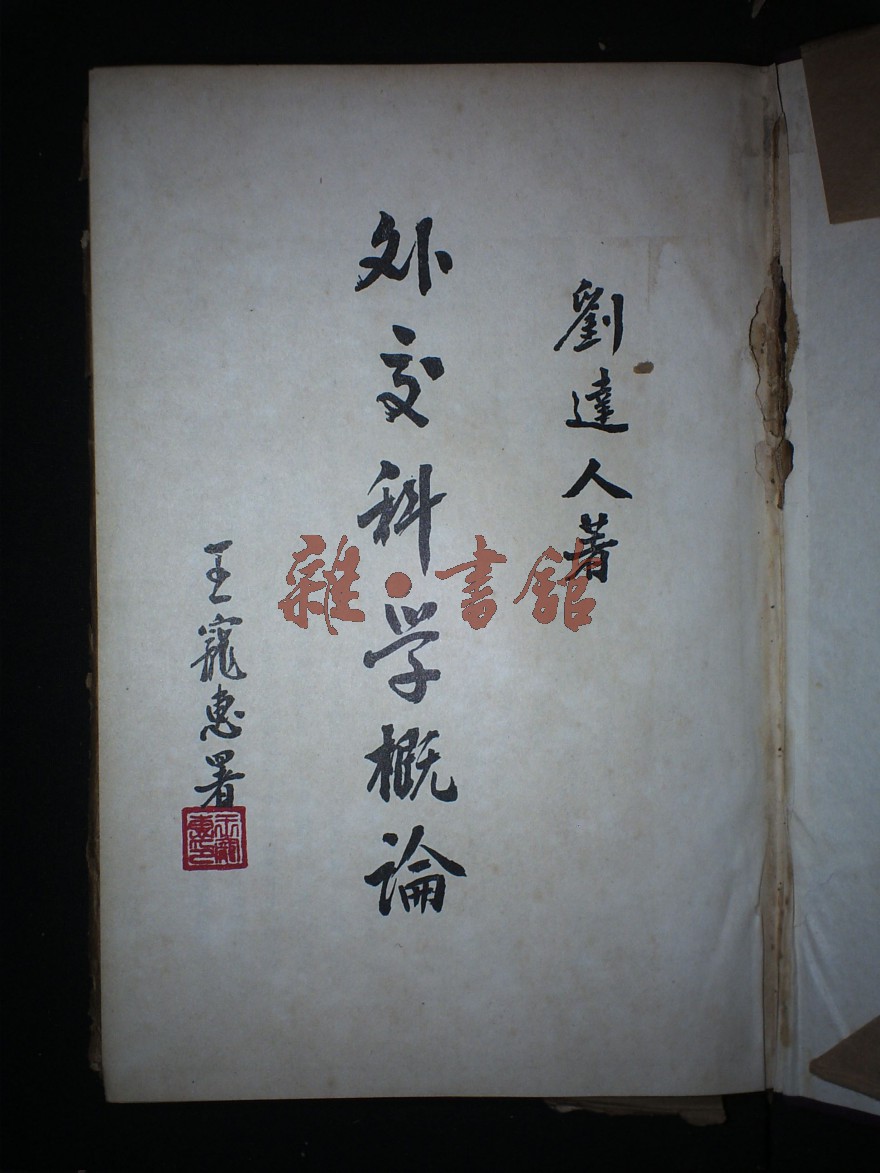 劉達人著
外交科学概論
王寵惠署
王寵惠印
雜·書館